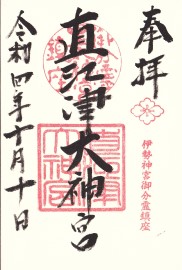 奉拝
伊勢神宮御分霊鎮座
直江津大神宮
令和四年十月十日